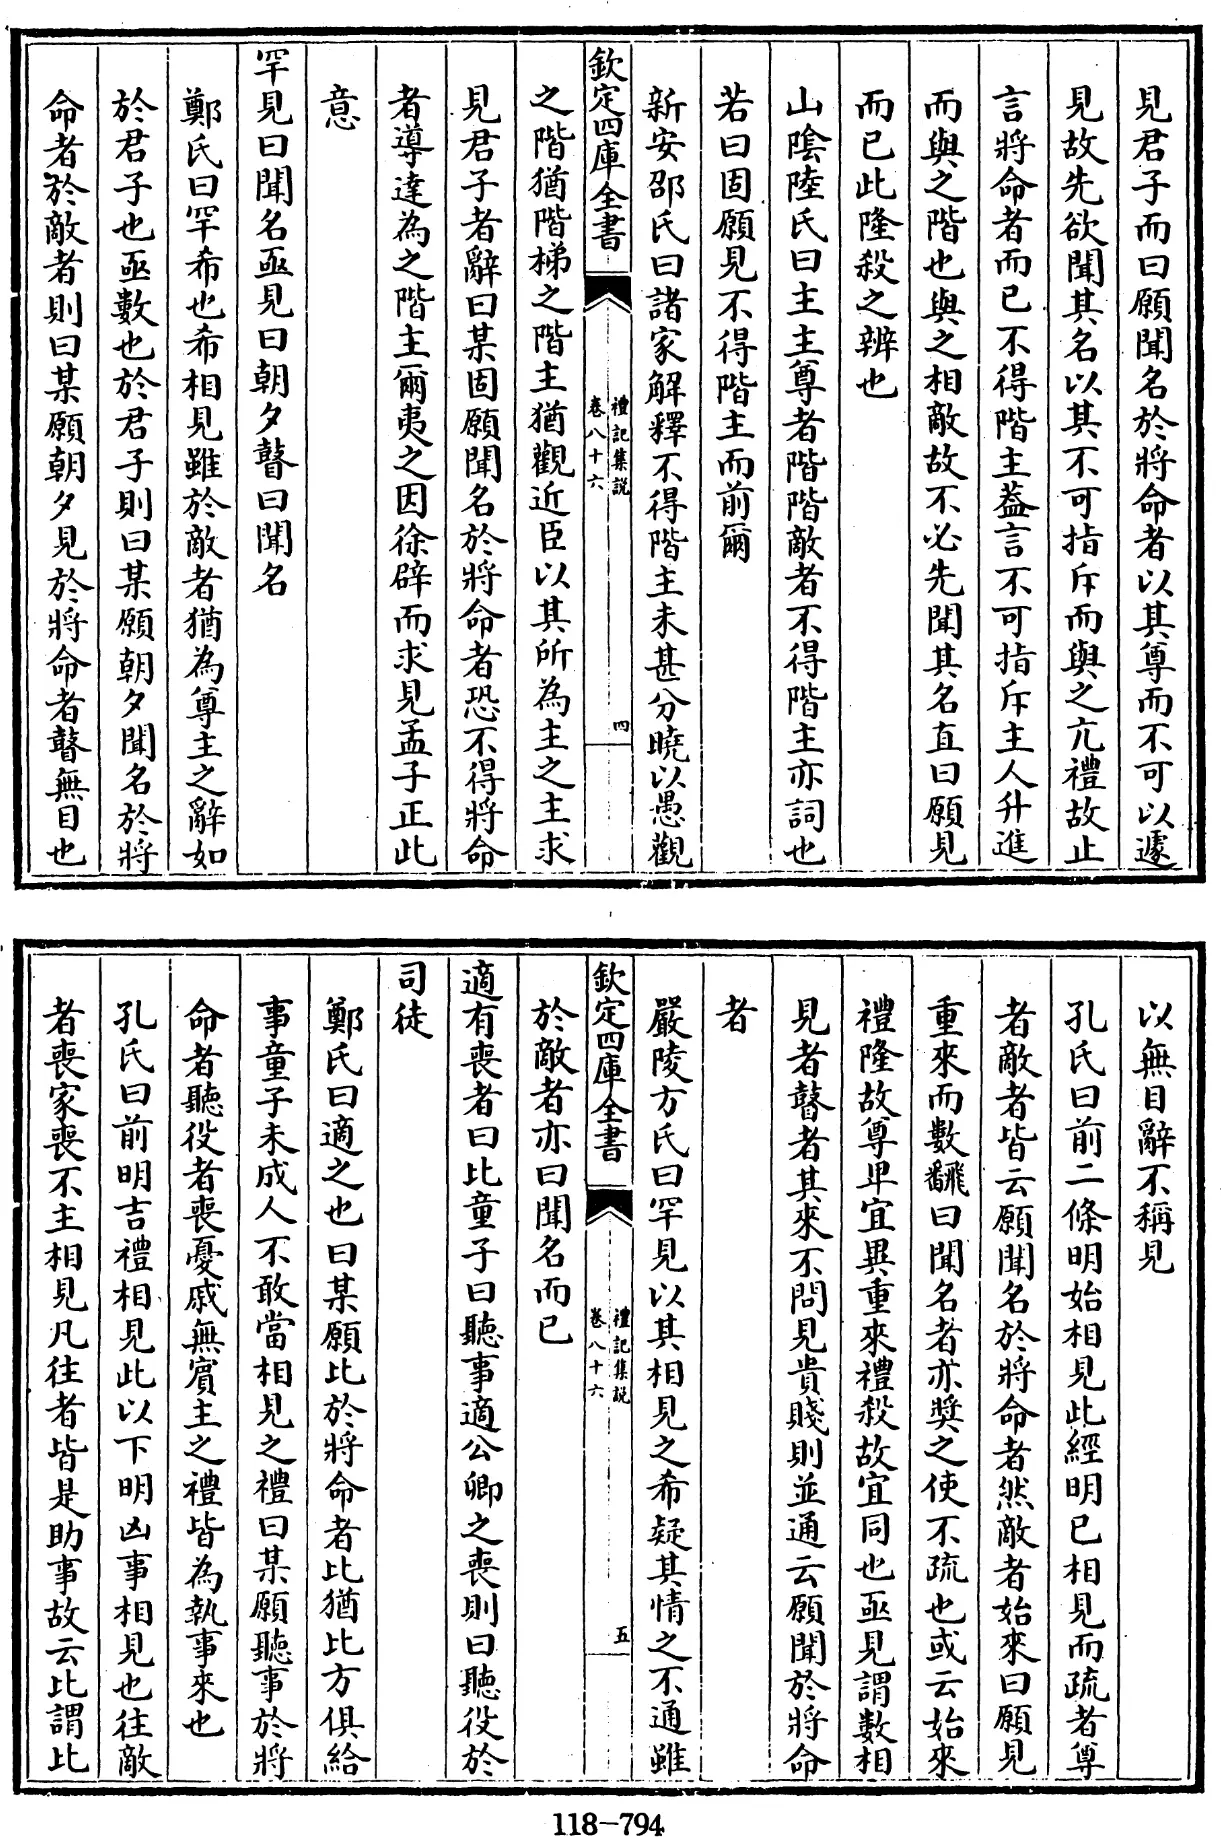 見君子而曰願聞名於將命者以其尊而不可以遽
見故先欲聞其名以其不可指斥而與之亢禮故止
言將命者而已不得階主葢言不可指斥主人升進
而與之階也與之相敵故不必先聞其名直曰願見
而已此隆殺之辨也
山隂陸氏曰主主尊者階階敵者不得階主亦詞也
若曰固願見不得階主而前爾
新安邵氏曰諸家解釋不得階主未甚分曉以愚觀
欽定四庫全書
禮記集説
卷八十六
四
之階猶階梯之階主猶觀近臣以其所為主之主求
見君子者辭曰某固願聞名於將命者恐不得將命
者導達為之階主爾夷之因徐辟而求見孟子正此
意
罕見曰聞名亟見曰朝夕瞽曰聞名
鄭氏曰罕希也希相見雖於敵者猶為尊主之辭如
於君子也亟數也於君子則曰某願朝夕聞名於將
命者於敵者則曰某願朝夕見於將命者瞽無目也
以無目辭不稱見
孔氏曰前二條明始相見此經明已相見而疏者尊
者敵者皆云願聞名於將命者然敵者始來曰願見
重來而數飜曰聞名者亦奬之使不疏也或云始來
禮隆故尊卑宜異重來禮殺故宜同也亟見謂數相
見者瞽者其來不問見貴賤則並通云願聞於將命
者
嚴陵方氏曰罕見以其相見之希疑其情之不通雖
欽定四庫全書
禮記集説
卷八十六
五
於敵者亦曰聞名而已
適有喪者曰比童子曰聽事適公卿之喪則曰聽役於
司徒
鄭氏曰適之也曰某願比於將命者比猶比方俱給
事童子未成人不敢當相見之禮曰某願聽事於將
命者聽役者喪憂戚無賓主之禮皆為執事來也
孔氏曰前明吉禮相見此以下明凶事相見也往敵
者喪家喪不主相見凡往者皆是助事故云比謂比
118-794